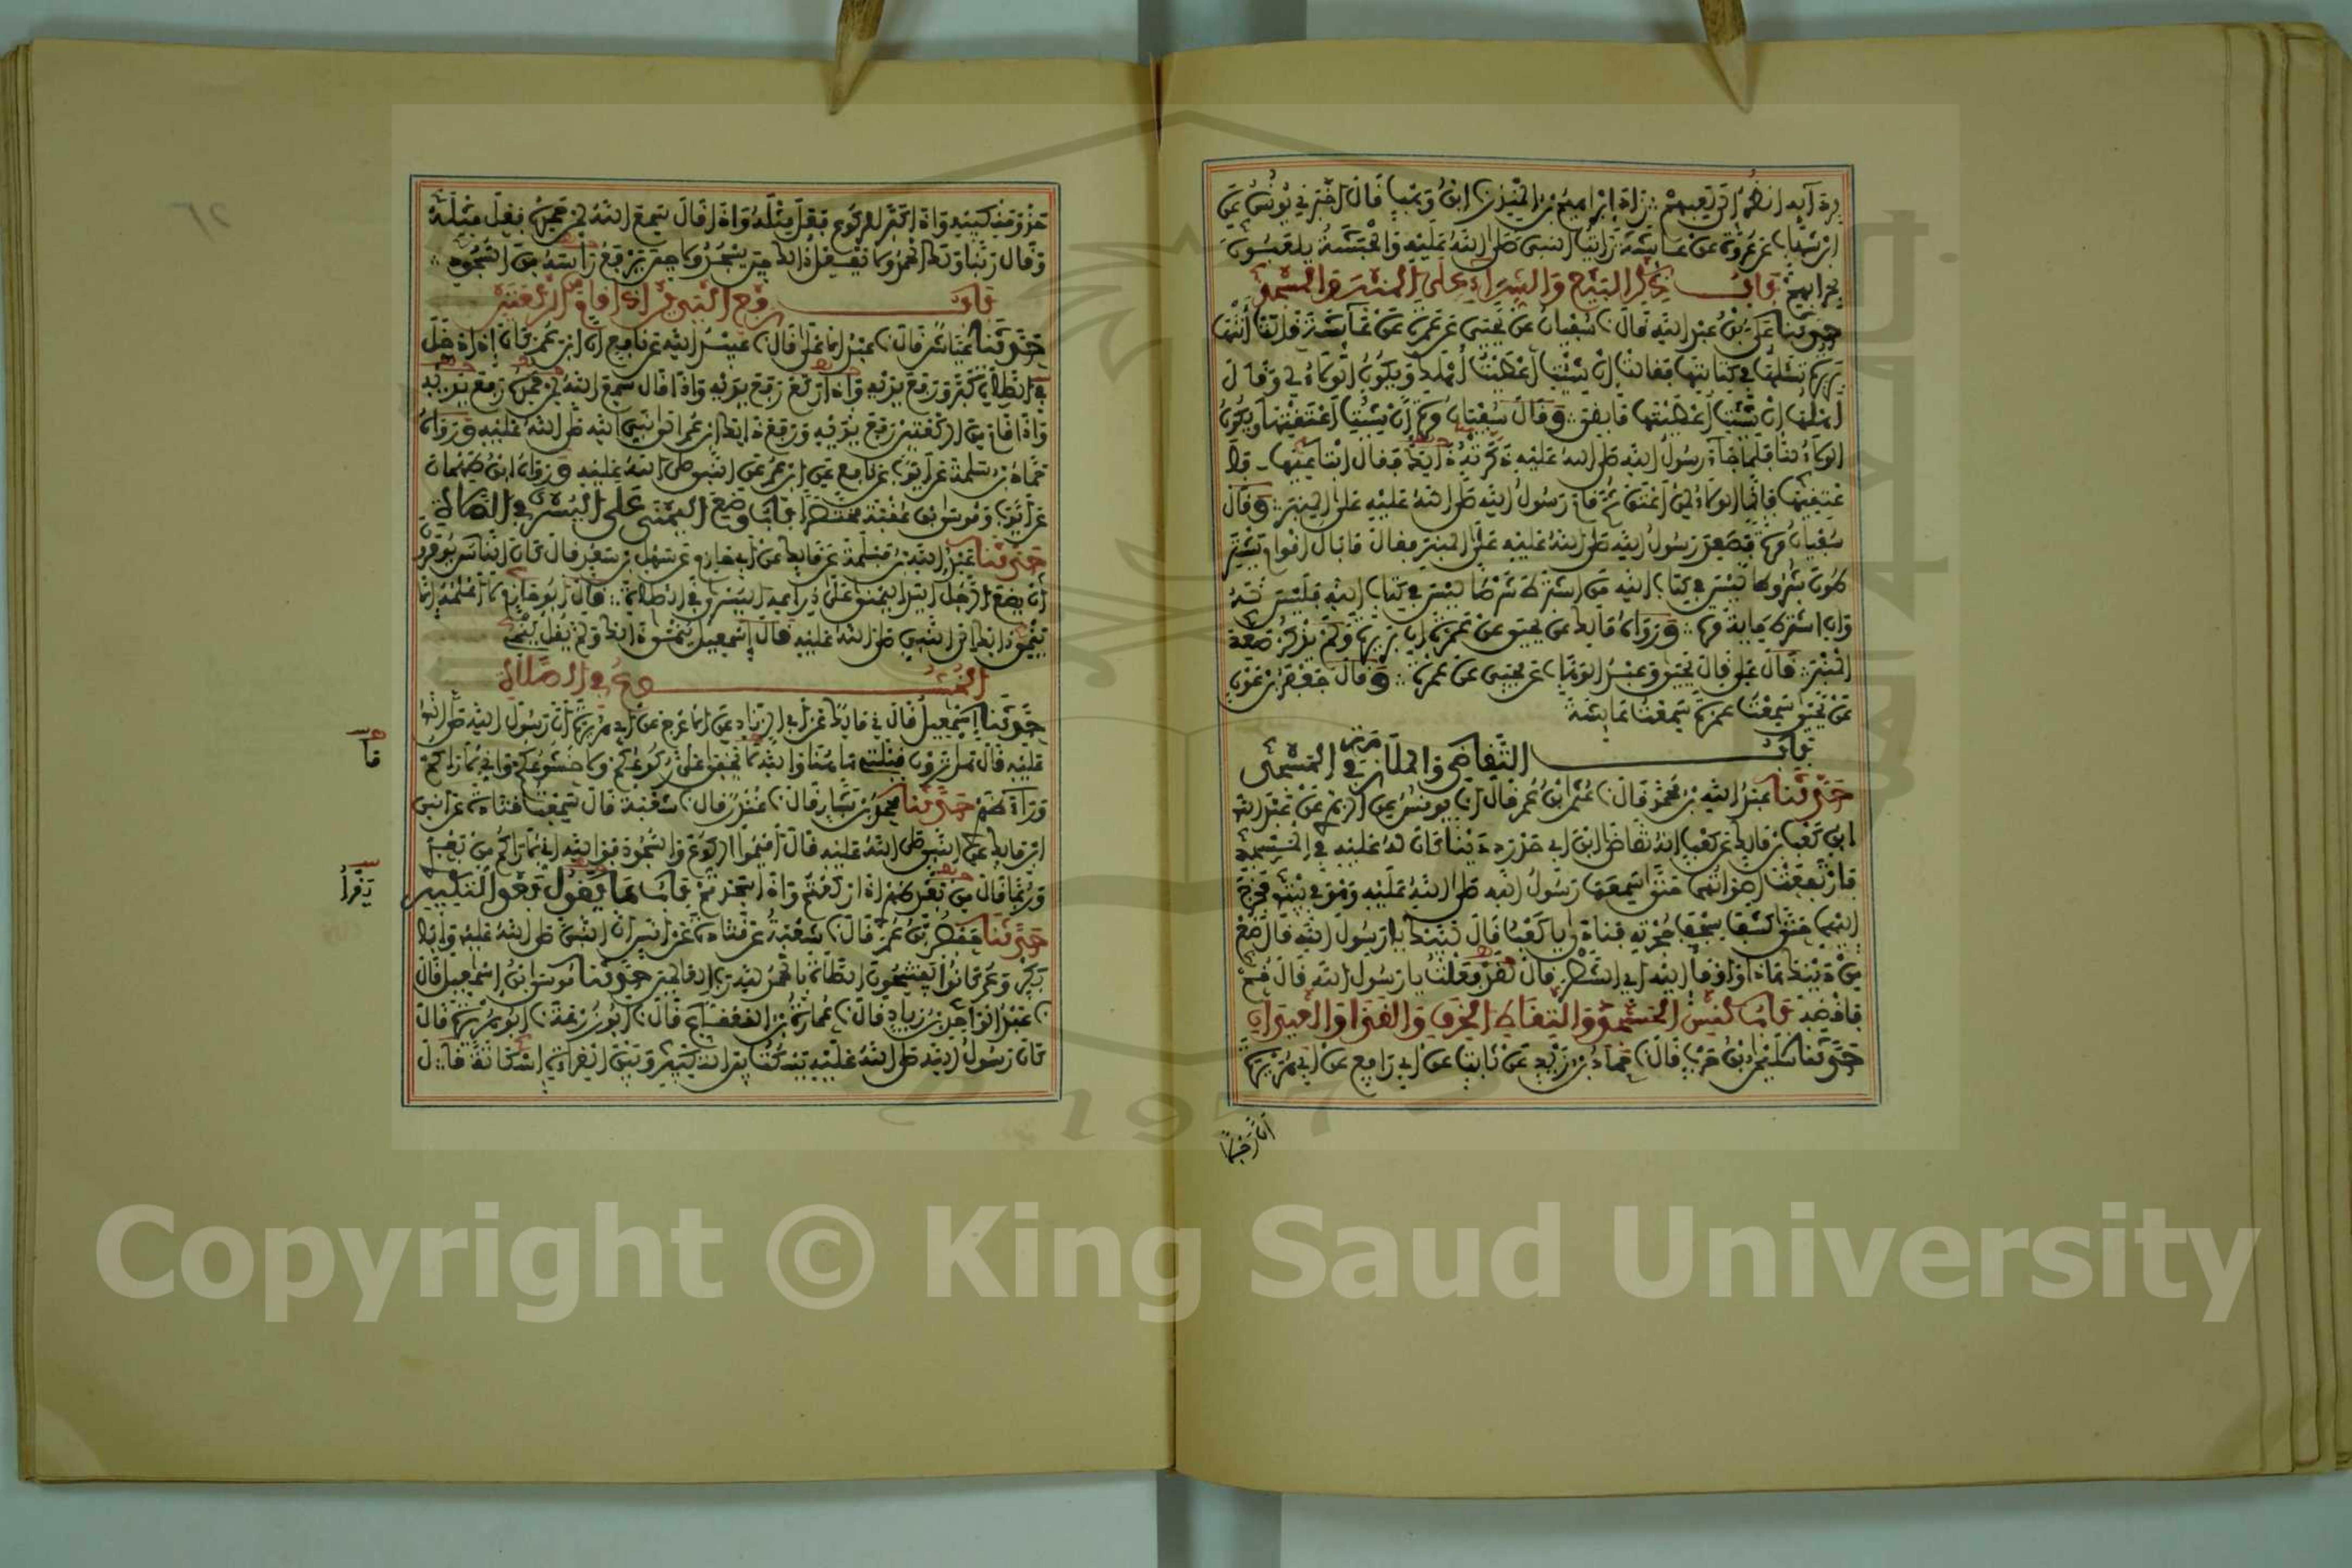 بردآيه انظر اتى تعبهم زاد ابراهيم بن المنذر نا ابن وهب قال اخبرني يونس عن
ابن شهاب عن عروة عن عائشة رايت النبي صلى الله عليه والحبشة يلعبون
بحرابهم باب ذكر البيع والشراء على المنبر في المسجد
حدثنا علي بن عبد الله قال نا سفيان عن يحيى عن عمرة عن عائشة قالت أتتها
بريرة تسألها في كتابتها فقالت إن شئت أعطيت أهلك ويكون الولاء لي وقال
أهلها إن شئت أعطيتها ما بقي وقال سفيان مرة إن شئت أعتقتها ويكون
الولاء لنا فلما جاء رسول الله صلى الله عليه ذكرته ذلك فقال ابتاعيها
فاعتقيها فإنما الولاء لمن أعتق ثم قام رسول الله صلى الله عليه على المنبر وقال
سفيان مرة فصعد رسول الله صلى الله عليه على المنبر فقال ما بال أقوام يشترطون
شروطا ليس في كتاب الله من اشترط شرطا ليس في كتاب الله فليس له
وان اشترط مائة مرة ورواه مالك عن يحيى عن عمرة ان بريرة ولم يذكر صعد
المنبر قال علي قال يحيى وعبد الوهاب عن يحيى عن عمرة وقال جعفر بن عون
عن يحيى سمعت عمرة سمعت عائشة
باب التقاضي والملازمة في المسجد
حدثنا عبد الله بن محمد قال نا عثمان بن عمر قال انا يونس عن الزهري عن عبد الله
ابن كعب بن مالك عن كعب انه تقاضى ابن ابي حدرد دينا كان له عليه في المسجد
فارتفعت اصواتهما حتى سمعها رسول الله صلى الله عليه وهو في بيته فخرج
اليهما حتى كشف سجف حجرته فنادى يا كعب قال لبيك يا رسول الله قال ضع
من دينك هذا واومأ اليه اي الشطر قال لقد فعلت يا رسول الله قال قم
فاقضه باب كنس المسجد والتقاط الخرق والقذى والعيدان
حدثنا سليمان بن حرب قال نا حماد بن زيد عن ثابت عن ابي رافع عن ابي هريرة
ان رجلا
حذو منكبيه واذا كبر للركوع فعل مثله واذا قال سمع الله لمن حمده فعل مثله
وقال ربنا ولك الحمد ولا يفعل ذلك حين يسجد ولا حين يرفع رأسه من السجود
باب رفع اليدين اذا قام من الركعتين
حدثنا عياش قال نا عبد الأعلى قال نا عبيد الله عن نافع ان ابن عمر كان اذا دخل
في الصلاة كبر ورفع يديه واذا ركع رفع يديه واذا قال سمع الله لمن حمده رفع يديه
واذا قام من الركعتين رفع يديه ورفع ذلك ابن عمر الى نبي الله صلى الله عليه ورواه
حماد بن سلمة عن أيوب عن نافع عن ابن عمر عن النبي صلى الله عليه ورواه ابن طهمان
عن أيوب وموسى بن عقبة مختصرا باب وضع اليمنى على اليسرى في الصلاة
حدثنا عبد الله بن مسلمة عن مالك عن أبي حازم عن سهل بن سعد قال كان الناس يؤمرون
أن يضع الرجل اليد اليمنى على ذراعه اليسرى في الصلاة قال أبو حازم لا أعلمه إلا
ينمي ذلك الى النبي صلى الله عليه قال إسمعيل ينمى ذلك ولم يقل ينمي
الخشوع في الصلاة
حدثنا إسمعيل قال في مالك عن أبي الزناد عن الأعرج عن أبي هريرة أن رسول الله صلى الله
عليه قال هل ترون قبلتي هاهنا والله ما يخفى علي ركوعكم ولا خشوعكم وإني لأراكم
وراء ظهري حدثنا محمد بن بشار قال نا غندر قال نا شعبة قال سمعت قتادة عن انس
ابن مالك عن النبي صلى الله عليه قال أقيموا الركوع والسجود فوالله إني لأراكم من بعدي
وربما قال من بعد ظهري اذا ركعتم واذا سجدتم باب ما يقول بعد التكبير
حدثنا حفص بن عمر قال نا شعبة عن قتادة عن انس ان النبي صلى الله عليه وأبا
بكر وعمر كانوا يفتتحون الصلاة بالحمد لله رب العالمين حدثنا موسى بن إسمعيل قال
نا عبد الواحد بن زياد قال نا عمارة بن القعقاع قال نا أبو زرعة نا أبو هريرة قال
كان رسول الله صلى الله عليه يسكت بين التكبير وبين القراءة إسكاتة قال
قا
يقرأ